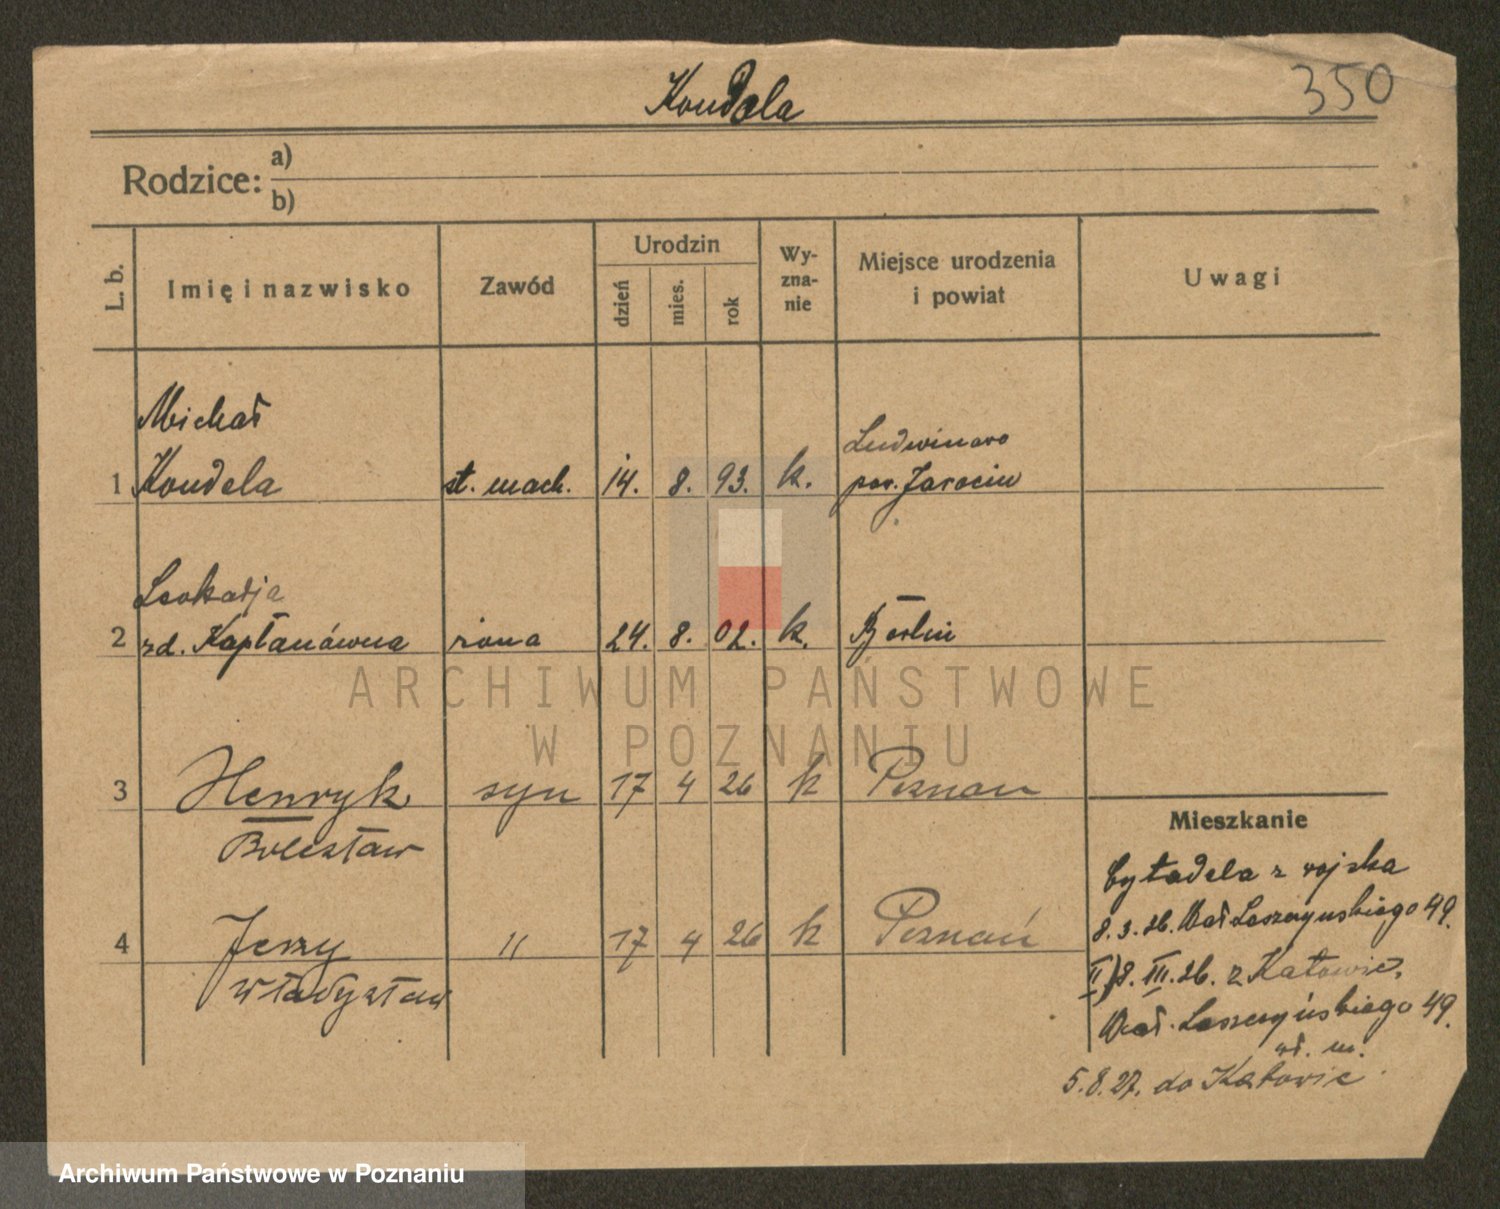 Kondela
350
Rodzice: a)
b)
L. b.
Imię i nazwisko
Zawód
Urodzin
dzień
mies.
rok
Wy-
zna-
nie
Miejsce urodzenia
i powiat
Uwagi
Michał
1 Kondela st. mach. 14. 8. 93. k.
Ludwinowo
pow. Jarocin
Leokadja
2 zd. Kapłanówna żona 24. 8. 02. k. Berlin
3 Henryk syn 17 4 26 k Poznań
Bolesław
4 Jerzy 11 17 4 26 k Poznań
Władysław
Mieszkanie
Cytadela z wojska
8. 3. 26. Wał Leszczyńskiego 49.
II) 8. III. 26. z Katowic,
Wał. Leszczyńskiego 49.
wł. m.
5. 8. 27. do Katowic
ARCHIWUM PAŃSTWOWE
W POZNANIU
Archiwum Państwowe w Poznaniu